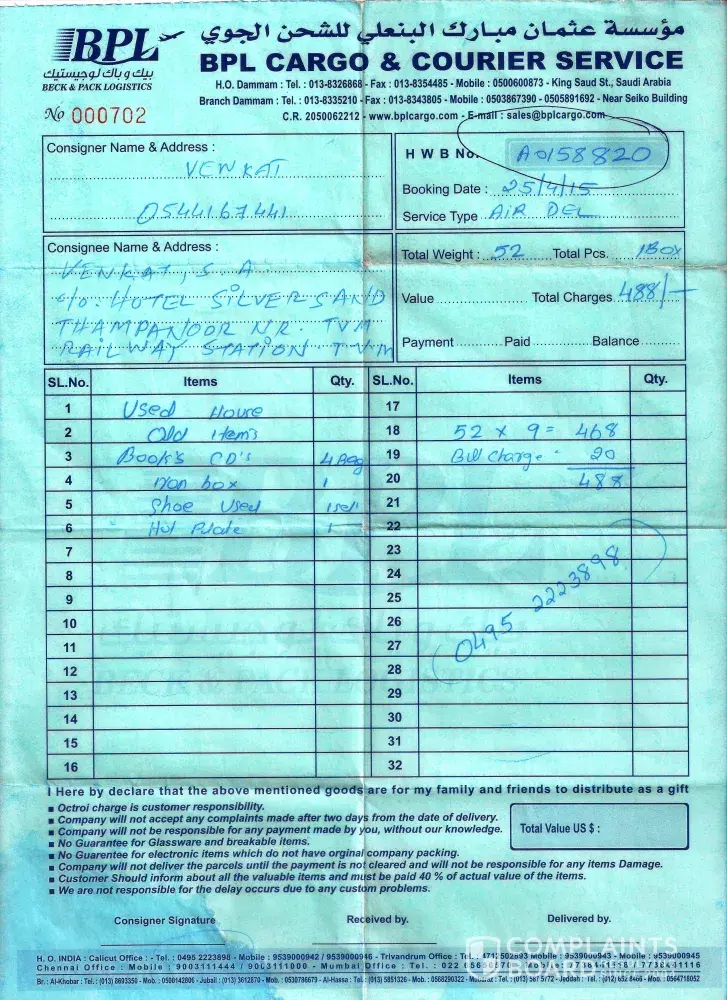 مؤسسة عثمان مبارك البنعلي للشحن الجوي
BPL
BPL CARGO & COURIER SERVICE
بيك و باك لوجيستيك
BECK & PACK LOGISTICS
H.O. Dammam : Tel. : 013-8326868 - Fax : 013-8354485 - Mobile : 0500600873 - King Saud St., Saudi Arabia
Branch Dammam : Tel. : 013-8335210 - Fax : 013-8343805 - Mobile : 0503867390 - 0505891692 - Near Seiko Building
C.R. 2050062212 - www.bplcargo.com - E-mail : sales@bplcargo.com
No 000702
Consigner Name & Address :
VENKAT
0544167441
H W B No. A0158820
Booking Date : 25/4/15
Service Type AIR DEL
Consignee Name & Address :
VENKAT, S. A
c/o. HOTEL SILVER SAND
THAMPANOOR NR. TVM
RAILWAY STATION. TVM
Total Weight : 52 Total Pcs. 1 BOX
Value Total Charges. 488/-
Payment Paid Balance
SL.No. Items Qty. SL.No. Items Qty.
1 Used House 17
2 Old Item's 18 52 x 9 = 468
3 Book's CD's 19 Bill Charge - 20
4 box 1 20 488
5 Shoe Used 1 set 21
6 Hot Plate 1 22
7 23
8 24
9 25
10 26
11 27
12 28
13 29
14 30
15 31
16 32
0495 2223898
BECK & PACK LOGISTICS
I Here by declare that the above mentioned goods are for my family and friends to distribute as a gift
■ Octroi charge is customer responsibility.
■ Company will not accept any complaints made after two days from the date of delivery.
■ Company will not be responsible for any payment made by you, without our knowledge.
■ No Guarantee for Glassware and breakable items.
■ No Guarentee for electronic items which do not have orginal company packing.
■ Company will not deliver the parcels until the payment is not cleared and will not be responsible for any items Damage.
■ Customer Should inform about all the valuable items and must be paid 40 % of actual value of the items.
■ We are not responsible for the delay occurs due to any custom problems.
Total Value US $ :
Consigner Signature Received by. Delivered by.
COMPLAINTS
BOARD
H. O. INDIA : Calicut Office : - Tel. : 0495 2223898 - Mobile : 9539000942 / 9539000946 - Trivandrum Office : Tel. : 4712502893 Mobile : 9539000943 - Mobile : 9539000945
Chennai Office : Mobile : 9003111444 / 9003111000 - Mumbai Office : Tel. : 022
Br. : Al-Khobar : Tel.: (013) 8693350 - Mob.: 0500142806 - Jubail : (013) 3612870 - Mob.: 0530786679 - Al-Hassa : Tel.: (013) 5851326 - Mob.: 0568290322 - Jeddah : Tel.: (012) - Mob.: 0564718052